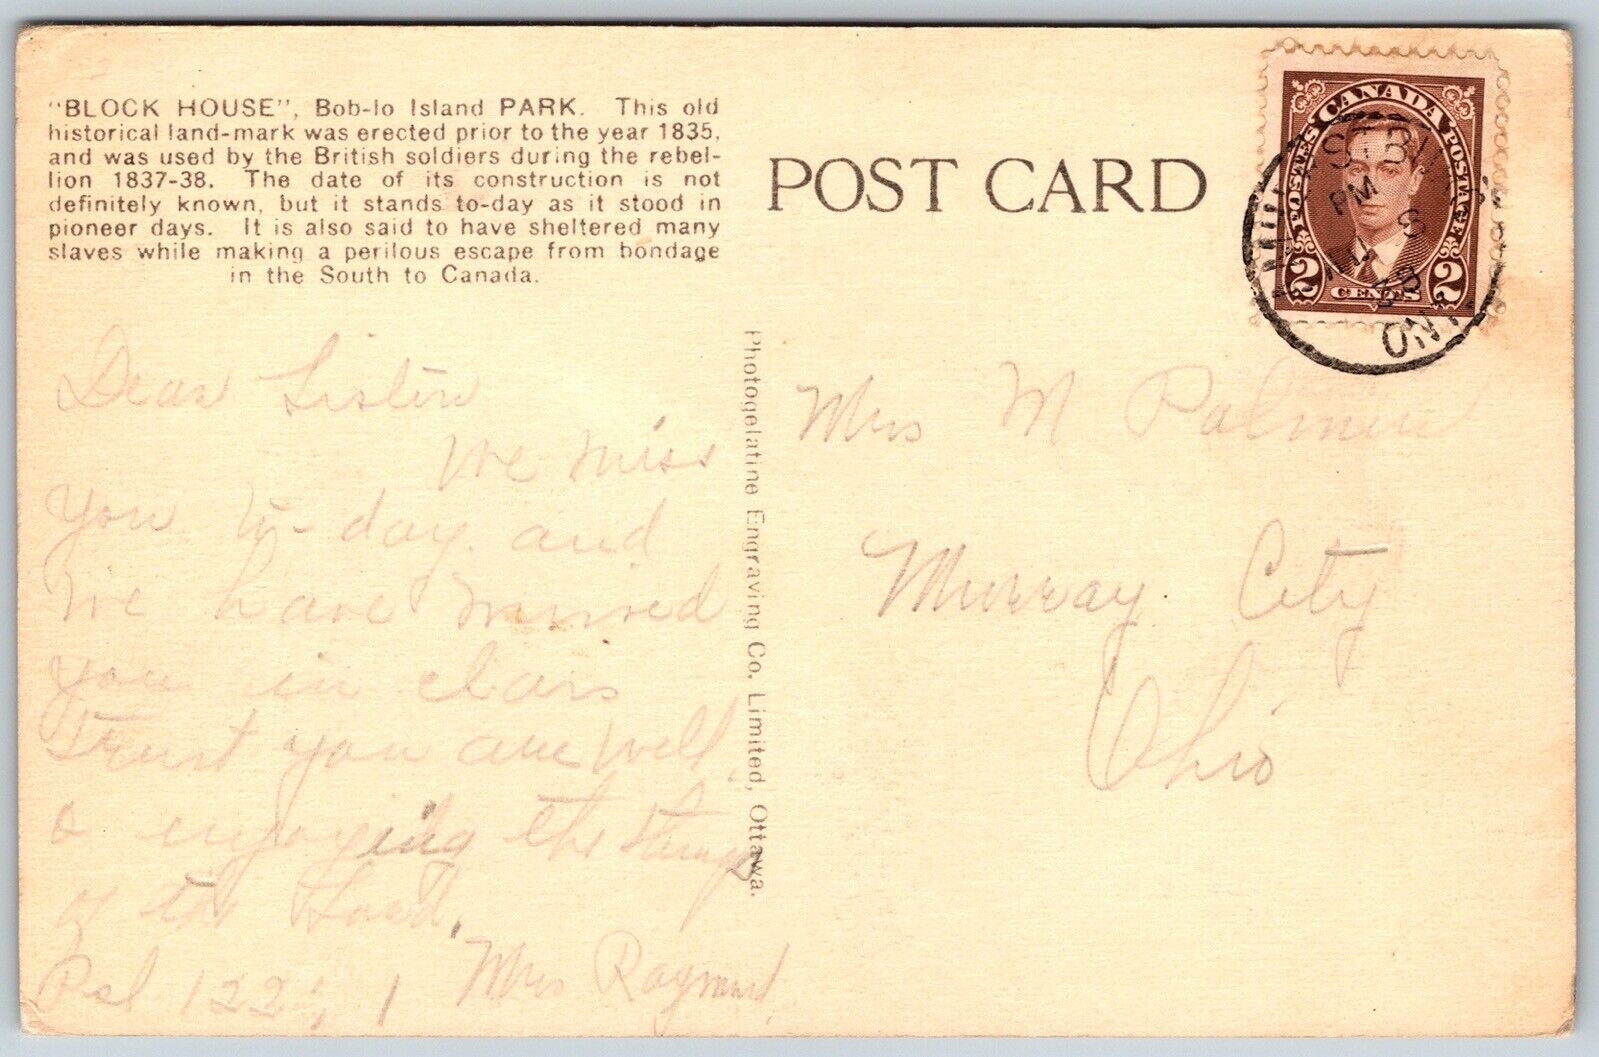 "BLOCK HOUSE", Bob-lo Island PARK. This old
historical land-mark was erected prior to the year 1835,
and was used by the British soldiers during the rebel-
lion 1837-38. The date of its construction is not
definitely known, but it stands to-day as it stood in
pioneer days. It is also said to have sheltered many
slaves while making a perilous escape from bondage
in the South to Canada.
POST CARD
CANADA
POSTES POSTAGE
2 CENTS 2
PM
ONT
Photogelatine Engraving Co. Limited, Ottawa.
Dear Sister
We miss
you to-day and
We have missed
you in class
Trust you are well
& enjoying the things
of the Lord.
Psl 122; 1 Mrs Raymond
Mrs M Palmer
Murray City
Ohio